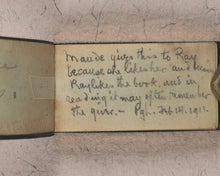 Maude gives this to Ray
because she likes her and because
Ray likes the book, and in
reading it may often remember
the giver. — Feb 14, 1911.